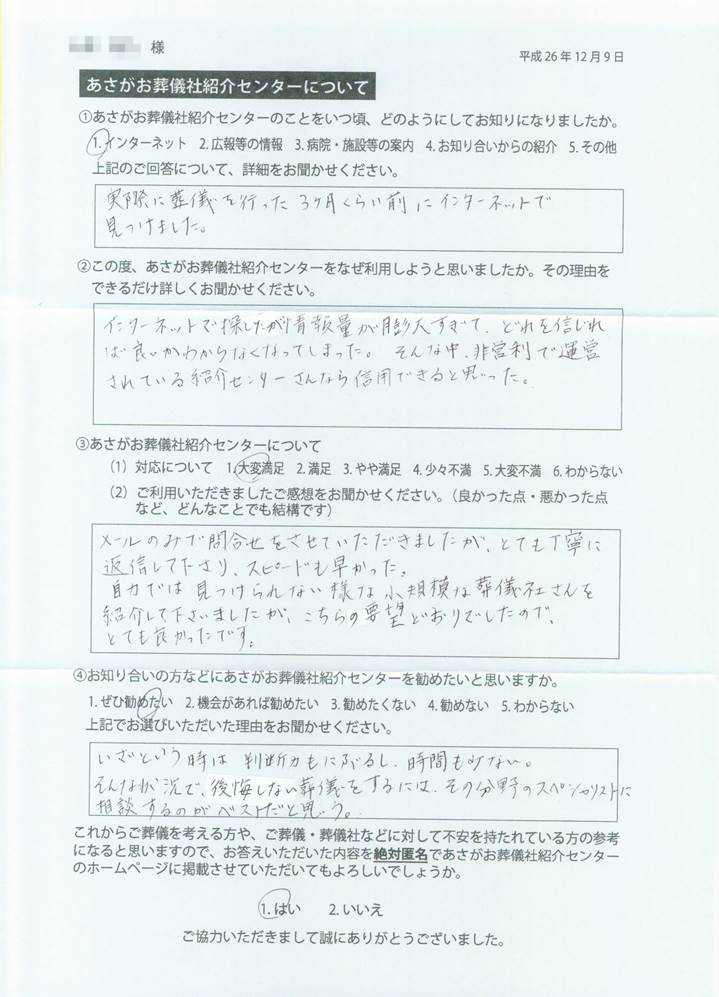 様
平成26年12月9日
あさがお葬儀社紹介センターについて
①あさがお葬儀社紹介センターのことをいつ頃、どのようにしてお知りになりましたか。
1.インターネット 2.広報等の情報 3.病院・施設等の案内 4.お知り合いからの紹介 5.その他
上記のご回答について、詳細をお聞かせください。
実際に葬儀を行った3ヶ月くらい前にインターネットで
見つけました。
②この度、あさがお葬儀社紹介センターをなぜ利用しようと思いましたか。その理由を
できるだけ詳しくお聞かせください。
インターネットで探したが情報量が膨大すぎて、どれを信じれ
ば良いかわからなくなってしまった。そんな中、非営利で運営
されている紹介センターさんなら信用できると思った。
③あさがお葬儀社紹介センターについて
(1) 対応について 1.大変満足 2.満足 3.やや満足 4.少々不満 5.大変不満 6.わからない
(2) ご利用いただきましたご感想をお聞かせください。(良かった点・悪かった点
など、どんなことでも結構です)
メールのみで問合せをさせていただきましたが、とても丁寧に
返信して下さり、スピードも早かった。
自力では見つけられない様な小規模な葬儀社さんを
紹介して下さいましたが、こちらの要望どおりでしたので、
とても良かったです。
④お知り合いの方などにあさがお葬儀社紹介センターを勧めたいと思いますか。
1.ぜひ勧めたい 2.機会があれば勧めたい 3.勧めたくない 4.勧めない 5.わからない
上記でお選びいただいた理由をお聞かせください。
いざという時は判断力もにぶるし、時間も少ない。
そんな状況で、後悔しない葬儀をするには、その分野のスペシャリストに
相談するのがベストだと思う。
これからご葬儀を考える方や、ご葬儀・葬儀社などに対して不安を持たれている方の参考
になると思いますので、お答えいただいた内容を絶対匿名であさがお葬儀社紹介センター
のホームページに掲載させていただいてもよろしいでしょうか。
1.はい 2.いいえ
ご協力いただきまして誠にありがとうございました。